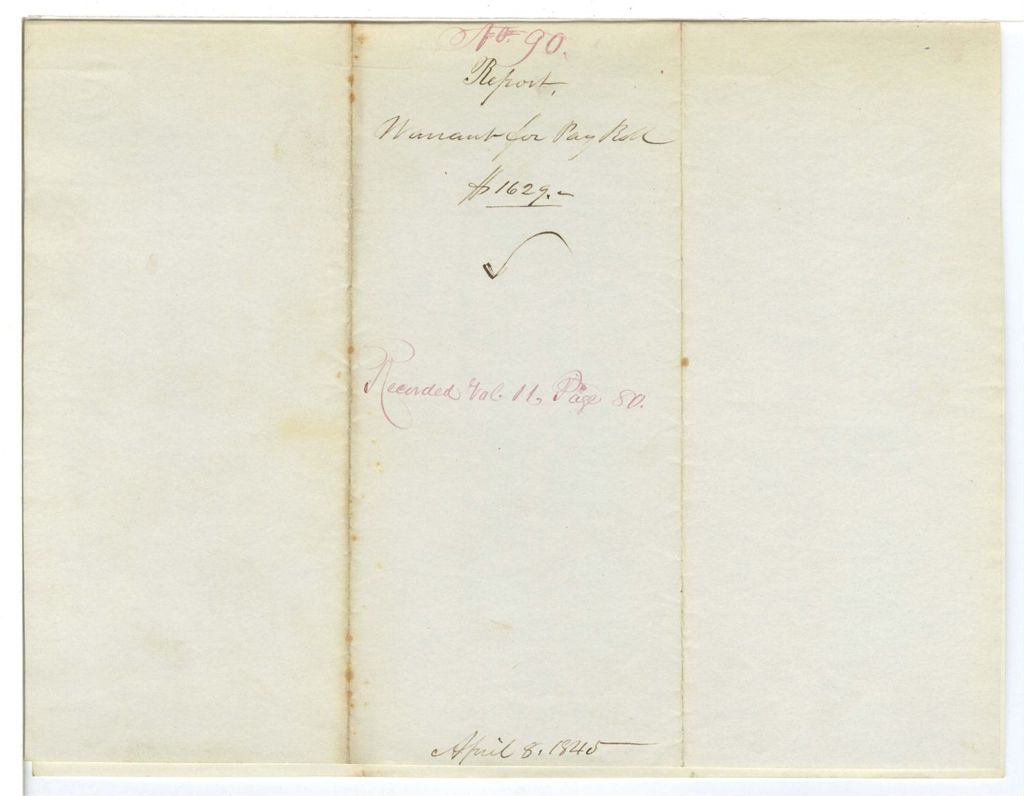 No. 90.
Report,
Warrant for Pay Roll
$1629.-
Recorded Vol. 11, Page 80.
April 8. 1845